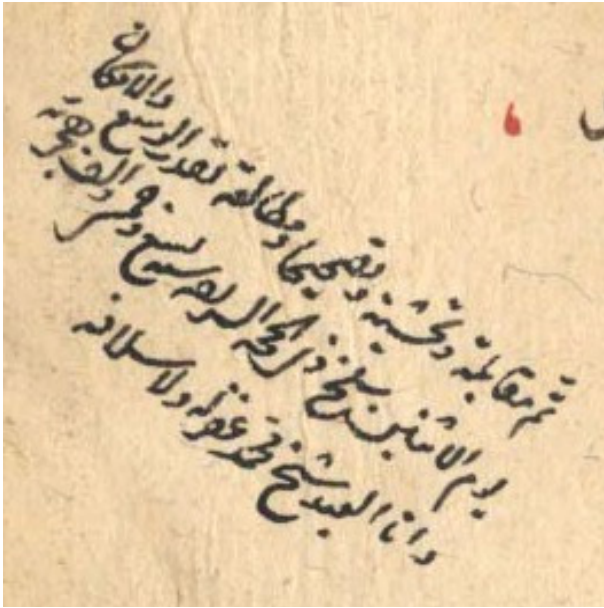 تم مقابلة وتحشية وتصحيحا ومطالعة بقدر الوسع والامكان
يوم الاثنين سلخ ذي الحجة سنه تسع و والف هجرية
وانا العبد شيخ محمد غفر له ولاسلافه